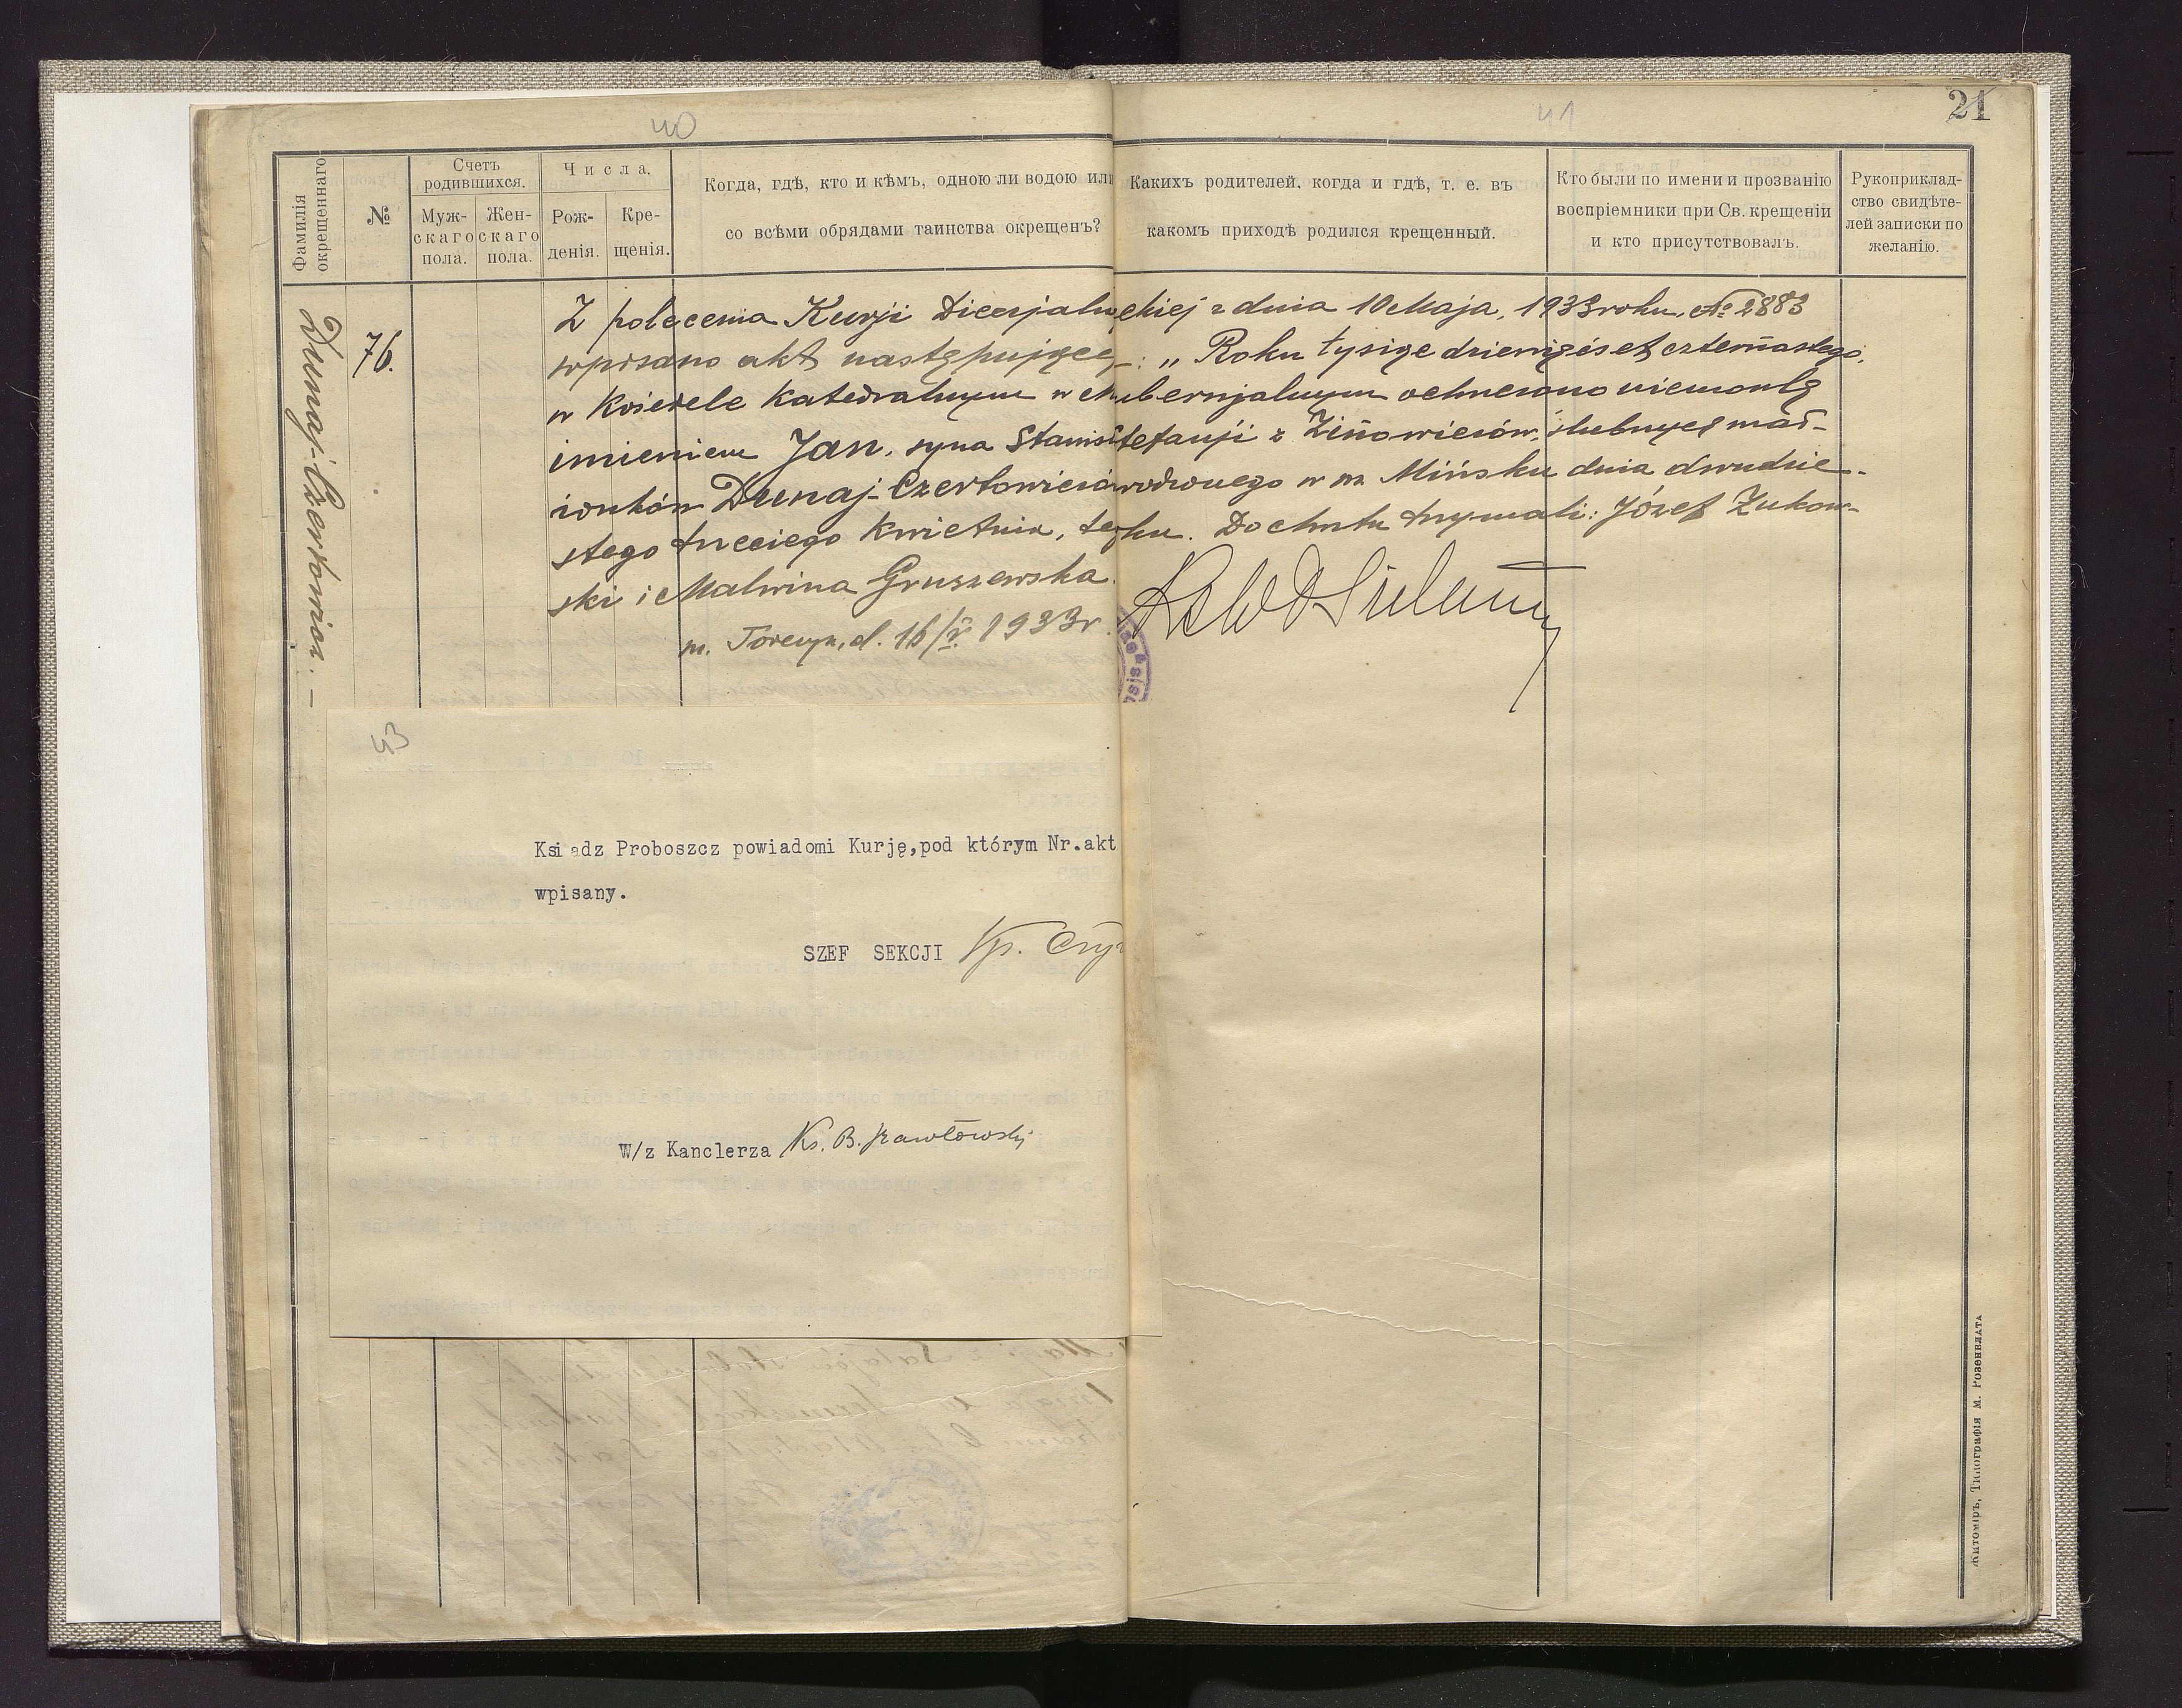 40
41
21
Фамилія окрещеннаго
№
Счетъ родившихся.
Муж-скаго пола.
Жен-скаго пола.
Числа.
Рож-денія.
Кре-щенія.
Когда, гдѣ, кто и кѣмъ, одною ли водою или
со всѣми обрядами таинства окрещенъ?
Какихъ родителей, когда и гдѣ, т. е. въ
какомъ приходѣ родился крещенный.
Кто были по имени и прозванію
воспріемники при Св. крещеніи
и кто присутствовалъ.
Рукоприклад-
ство свидѣте-
лей записки по
желанію.
Dunaj-Czerłowicz. —
76.
Z polecenia Kurji Diecezjaln ckiej z dnia 10 Maja, 1933 roku, № 2883
wpisano akt następujące : „ Roku tysiąc dziewięćset czternastego,
w Kościele Katedralnym w M ubernjalnym ochrzczono niemowlę
imieniem Jan, syna Stanisł Stefanji z Zinowiczów, ślubnych mał-
żonków Dunaj-Czerłowiczów rodzonego w m. Mińsku dnia dwudzie-
stego trzeciego Kwietnia, te ku. Do chrztu trzymali: Józef Żukow-
ski i Malwina Gruszewska.
m. Torczyn, d. 16/V 1933 r.
43
Ksiądz Proboszcz powiadomi Kurję,pod którym Nr.akt
wpisany.
SZEF SEKCJI
W/z Kanclerza Ks. B. Pawłowski
Житоміръ, Типографія М. Розенблата